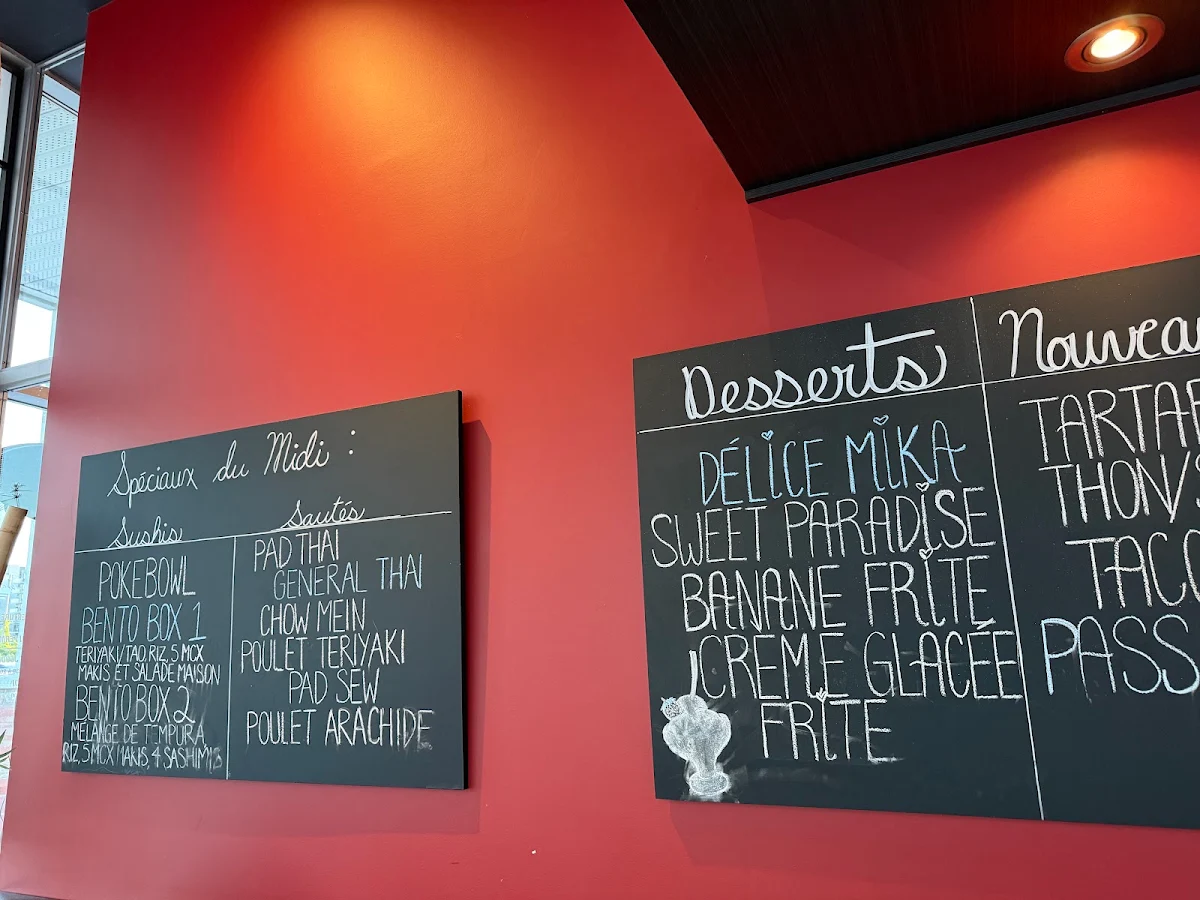 Spéciaux du Midi :
Sushis
POKEBOWL
BENTO BOX 1
TERIYAKI/TAO, RIZ, 5 MCX
MAKIS ET SALADE MAISON
BENTO BOX 2
MELANGE DE TEMPURA
RIZ, 5 MCX MAKIS, 4 SASHIMIS
Sautés
PAD THAI
GENERAL THAI
CHOW MEIN
POULET TERIYAKI
PAD SEW
POULET ARACHIDE
Desserts
DÉLICE MIKA
SWEET PARADISE
BANANE FRITE
CRÈME GLACÉE
FRITE
Nouveau
TARTAR
THON/S
TACO
PASS